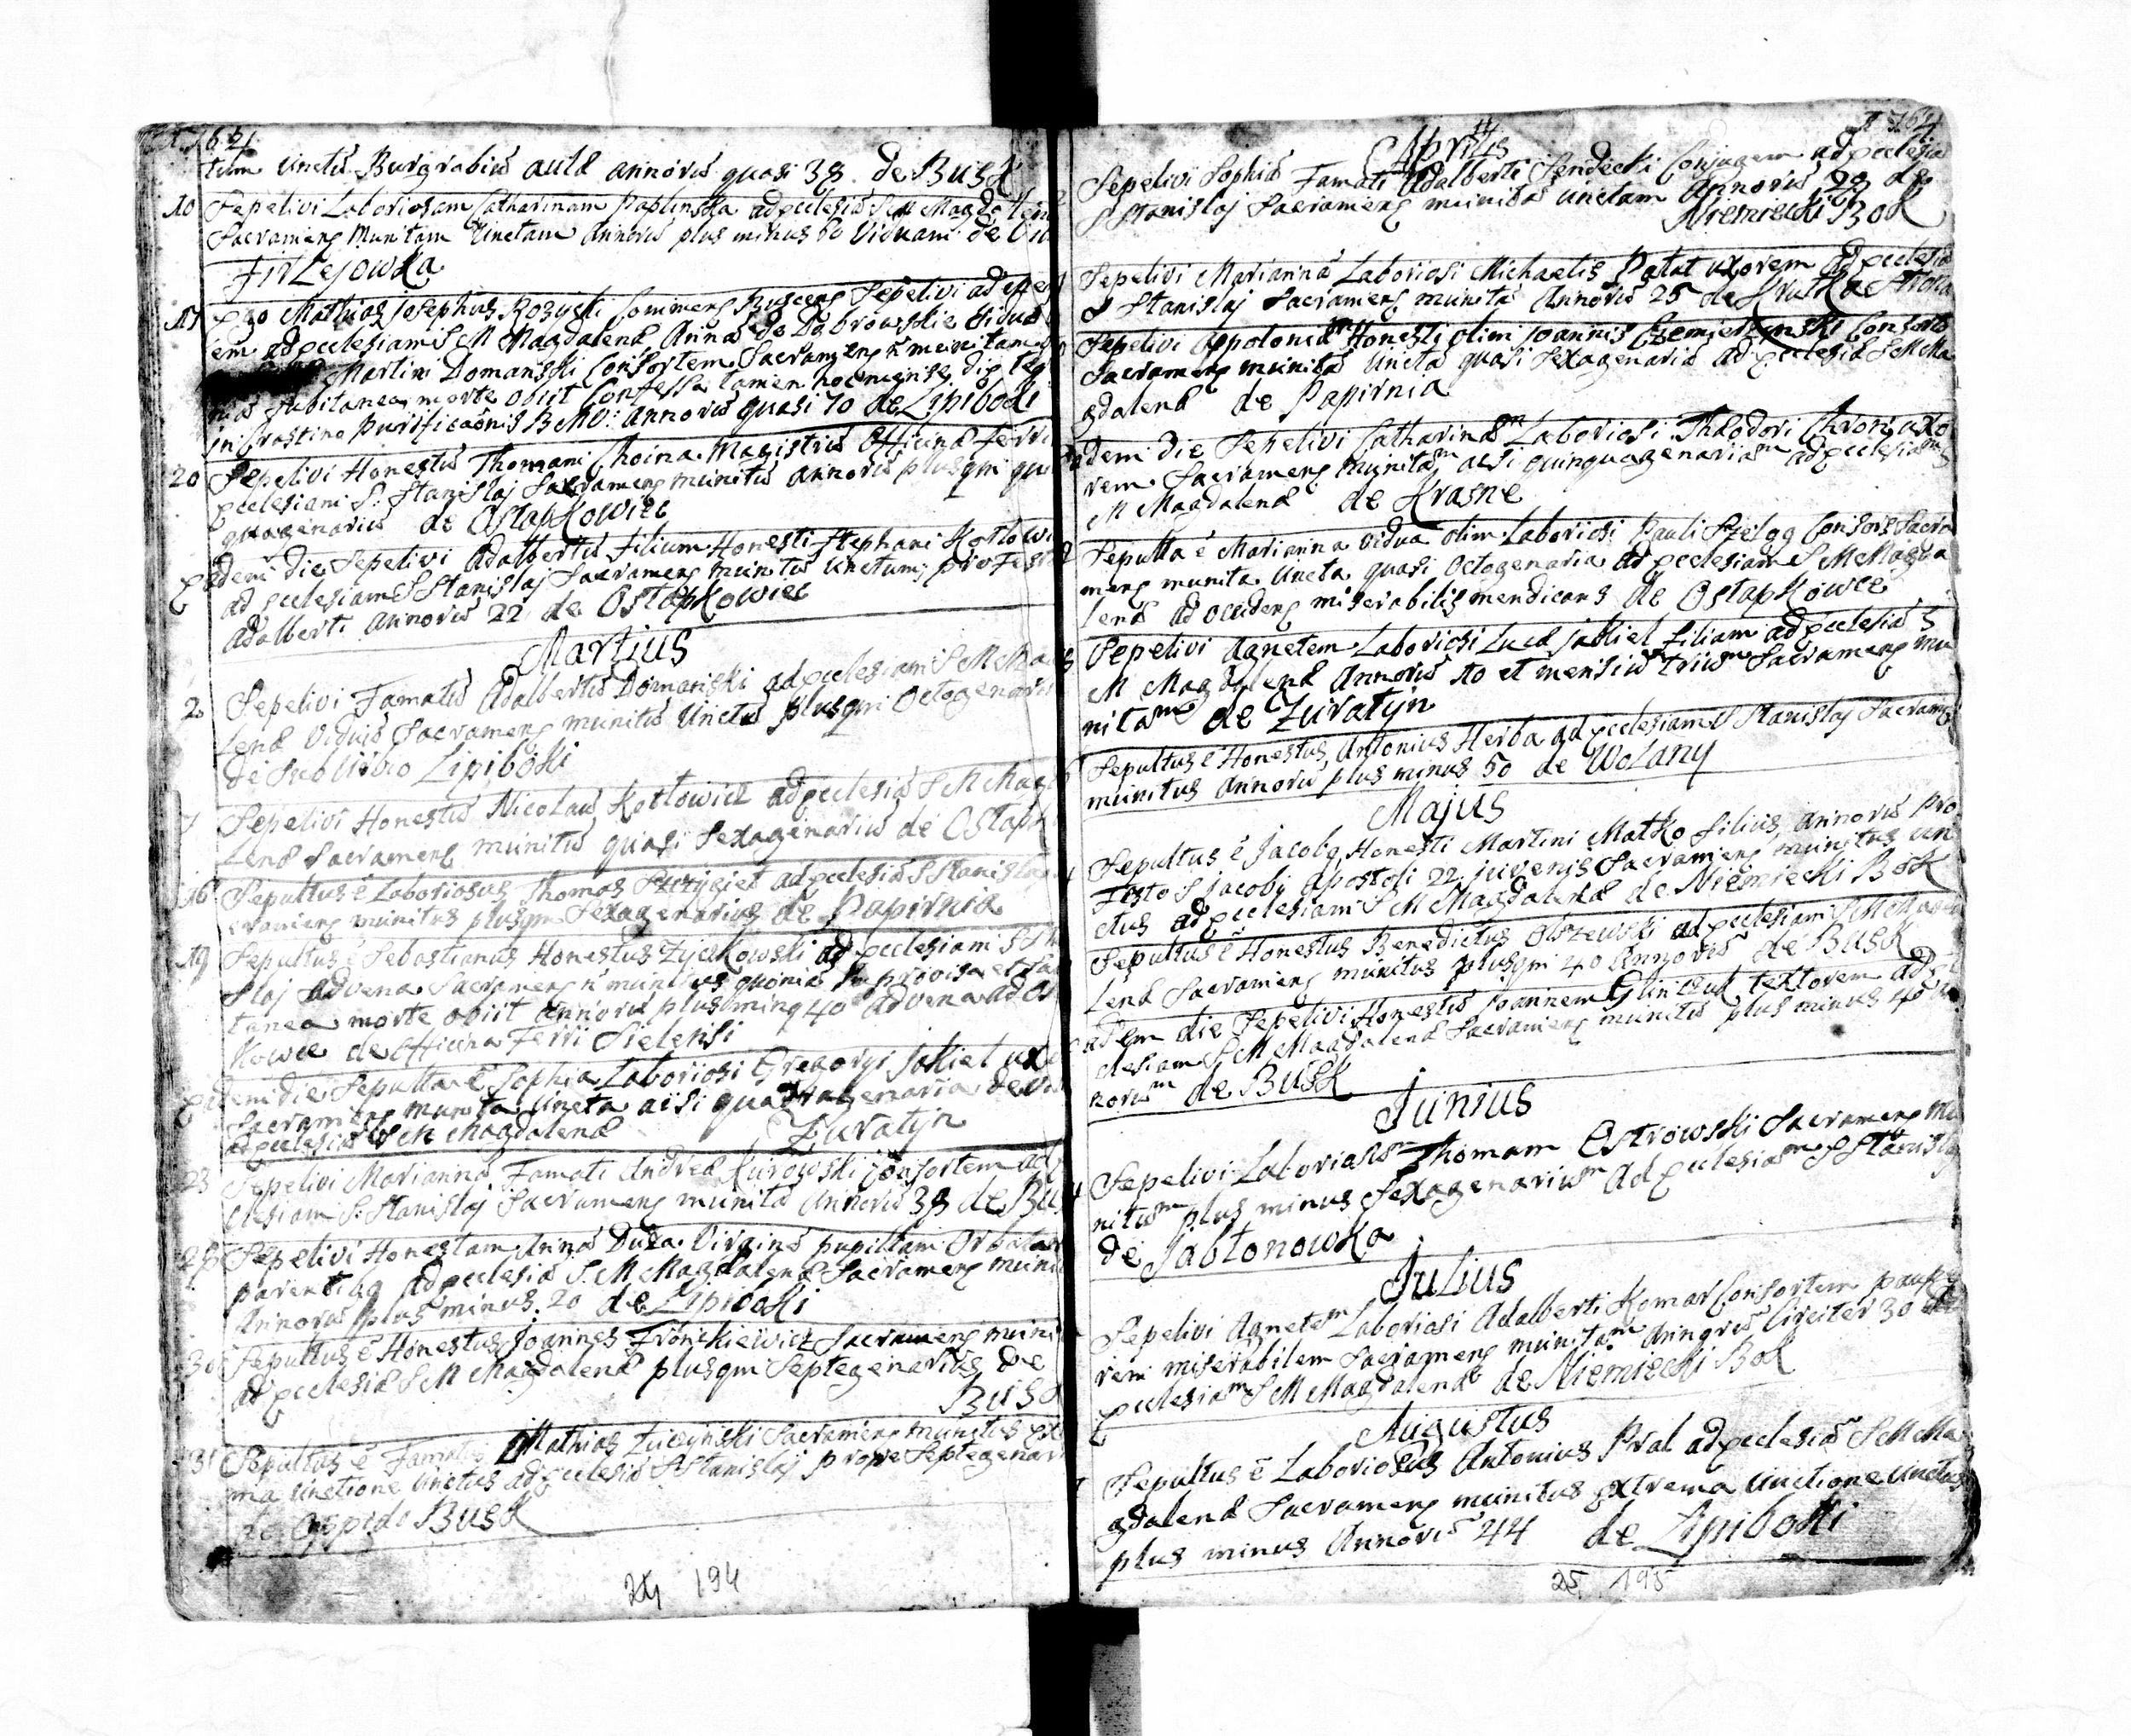 A 1764
tum Unctū Burgrabiū aulæ annorū quasi 38 de Busk
10 Sepelivi Laboriosam Catharinam Paplinska ad ecclesiā S M Magdalen
Sacramens munitam Unctam annorū plus minus 60 Viduam de
Firlejowka
Ego Mathias Josephus Rozycki Commens Sepelivi ad
em ad ecclesiam S M Magdalenæ Annā de Dąbrowskie
Martini Domanski Consortem Sacramens munitam
subitanea morte obiit Confessa tamen hocmense die
in Crastino Purificaōnis B M V: annorū quasi 70 de Lipiboki
20 Sepelivi Honestū Thomam Choina Magistrū Officinæ Ferri
ecclesiam S: Stanislaj Sacramens munitū annorū plusqm qui
quagenariū de Ostapkowiec
Eadem die Sepelivi Adalbertū Filium Honesti Stephani Kotłowi
ad ecclesiam S Stanislaj Sacramens munitū unctum pro Fest
Adalberti annorū 22 de Ostapkowiec
Martius
2 Sepelivi Famatū Adalbertū Domanski ad ecclesiam S M Ma
lenæ Viduū Sacramens munitū Unctū plusqm Octogenariū
de Lipiboki
7 Sepelivi Honestū Nicolaū Kotłowicz ad ecclesiā S M Mag
lenæ Sacramens munitū quasi Sexagenariū de Ostapk
16 Sepultus ē Laboriosus Thomas Szczygieł ad ecclesiā S Stanisla
cramens munitus plusqm Sexagenarius de Papirnia
19 Sepultus ē Sebastianus Honestus Zyckowski ad ecclesiam S
slaj advena Sacramens munitus quoniā improvisa et
tanea morte obiit annorū plus minq 40 advena ad Os
kowce de Officina Ferri Sielensi
Eademdie Sepulta ē Sophia Laboriosi Gregorij Jakiel ux
Sacramens munita Uncta aēsi quadragenaria de
ad ecclesiā S M Magdalenæ Zuratyn
23 Sepelivi Mariannā Famati Andreæ Kurowski Consortem ad
clesiam S: Stanislaj Sacramens munitā annorū 38 de Bu
Sepelivi Honestam Annā Duda Virginē pupillam Orbata
parentibq ad ecclesiā S. M Magdalenæ Sacramens muni
Annorū plus minus 20 de Lipiboki
30 Sepultus ē Honestus Joannes Fronckiewicz Sacramens muni
ad ecclesiā S M Magdalenæ plusqm Septegenarius de
Busk
31 Sepultus ē Famatus Mathias Zuczynski Sacramens munitus ex
ma Unctione Unctus ad ecclesiā S Stanislaj prope Septegenar
de Oppido Busk
24 194
A 1764
Aprilis
Sepelivi Sophiā Famati Adalberti Sendecki Conjugem ad ecclesiā
S Stanislaj Sacramens munitā Unctam Annorū 29 de
Niemiecki Bok
Sepelivi Mariannā Laboriosi Michaelis Patat Uxorem ad ecclesiā
S Stanislaj Sacramens munitā Annorū 25 de Krutka Strona
Sepelivi Appoloniām Honesti olim Joannis Consorte
Sacramens munitā Unctā quasi Sexagenariā ad ecclesiā S M Ma
gdalenæ de Papirnia
dem die Sepelivi Catharinām Laboriosi Theodori Chron uxo
rem Sacramens munitam aēsi quinquagenariam ad ecclesiam S
M Magdalenæ de Krasne
Sepulta ē Marianna Vidua olim Laboriosi Pauli Szeląg Consors Sacra
mens munita Uncta quasi Octogenaria ad ecclesiam S M Magda
lenæ miserabilis mendicans de Ostapkowce
Sepelivi Agnetem Laboriosi Lucæ Jakiel Filiam ad ecclesiā S
M Magdalenæ Annorū 10 et mensiū trium Sacramens mu
nitam de Zuratyn
Sepultus ē Honestus Antonius Herba ad ecclesiam S Stanislaj Sacrams
munitus annorū plus minus 50 de Wolany
Majus
Sepultus ē Jacobq Honesti Martini Matko Filius, annorū pro
Festo S Jacobi Apostoli 22 juvenis Sacramens munitus un
ctus ad ecclesiam S M Magdalenæ de Niemiecki Bok
Sepultus ē Honestus Benedictus Olszewski ad ecclesiam S M Magda
lenæ Sacramens munitus plusqm 40 Annorū de Busk
adem die Sepelivi Honestū Joannem Glinczuk textorem ad ec
clesiam S M Magdalenæ Sacramens munitū plus minus 40 an
norum de Busk
Junius
Sepelivi Laboriosū Thomam Ostrowski Sacramens mu
nitum plus minus Sexagenarium ad ecclesiam S Stanislaj
de Jabłonowka
Julius
Sepelivi Agnetem Laboriosi Adalberti Komar Consortem paupe
rem miserabilem Sacramens munitam Annorū Circiter 30 ad
Ecclesiam S M Magdalenæ de Niemiecki Bok
Augustus
Sepultus ē Laboriosus Antonius Pral ad ecclesiā S M Ma
gdalenæ Sacramens munitus Extrema Unctione Unctus
plus minus Annorū 44 de Lipiboki
25 195